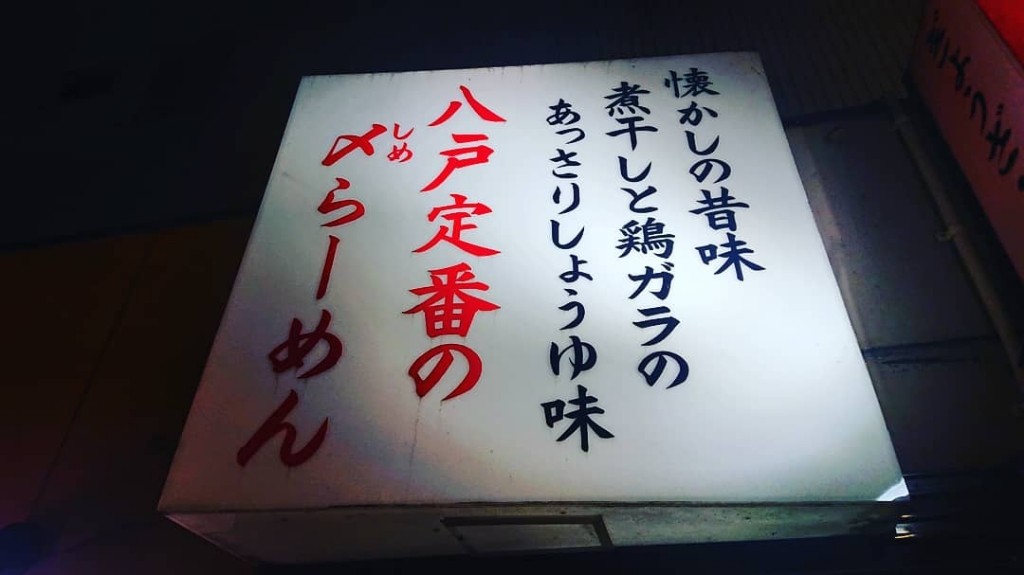 懐かしの昔味
煮干しと鶏ガラの
あっさりしょうゆ味
八戸定番の
〆らーめん
しめ
ぎょうざ